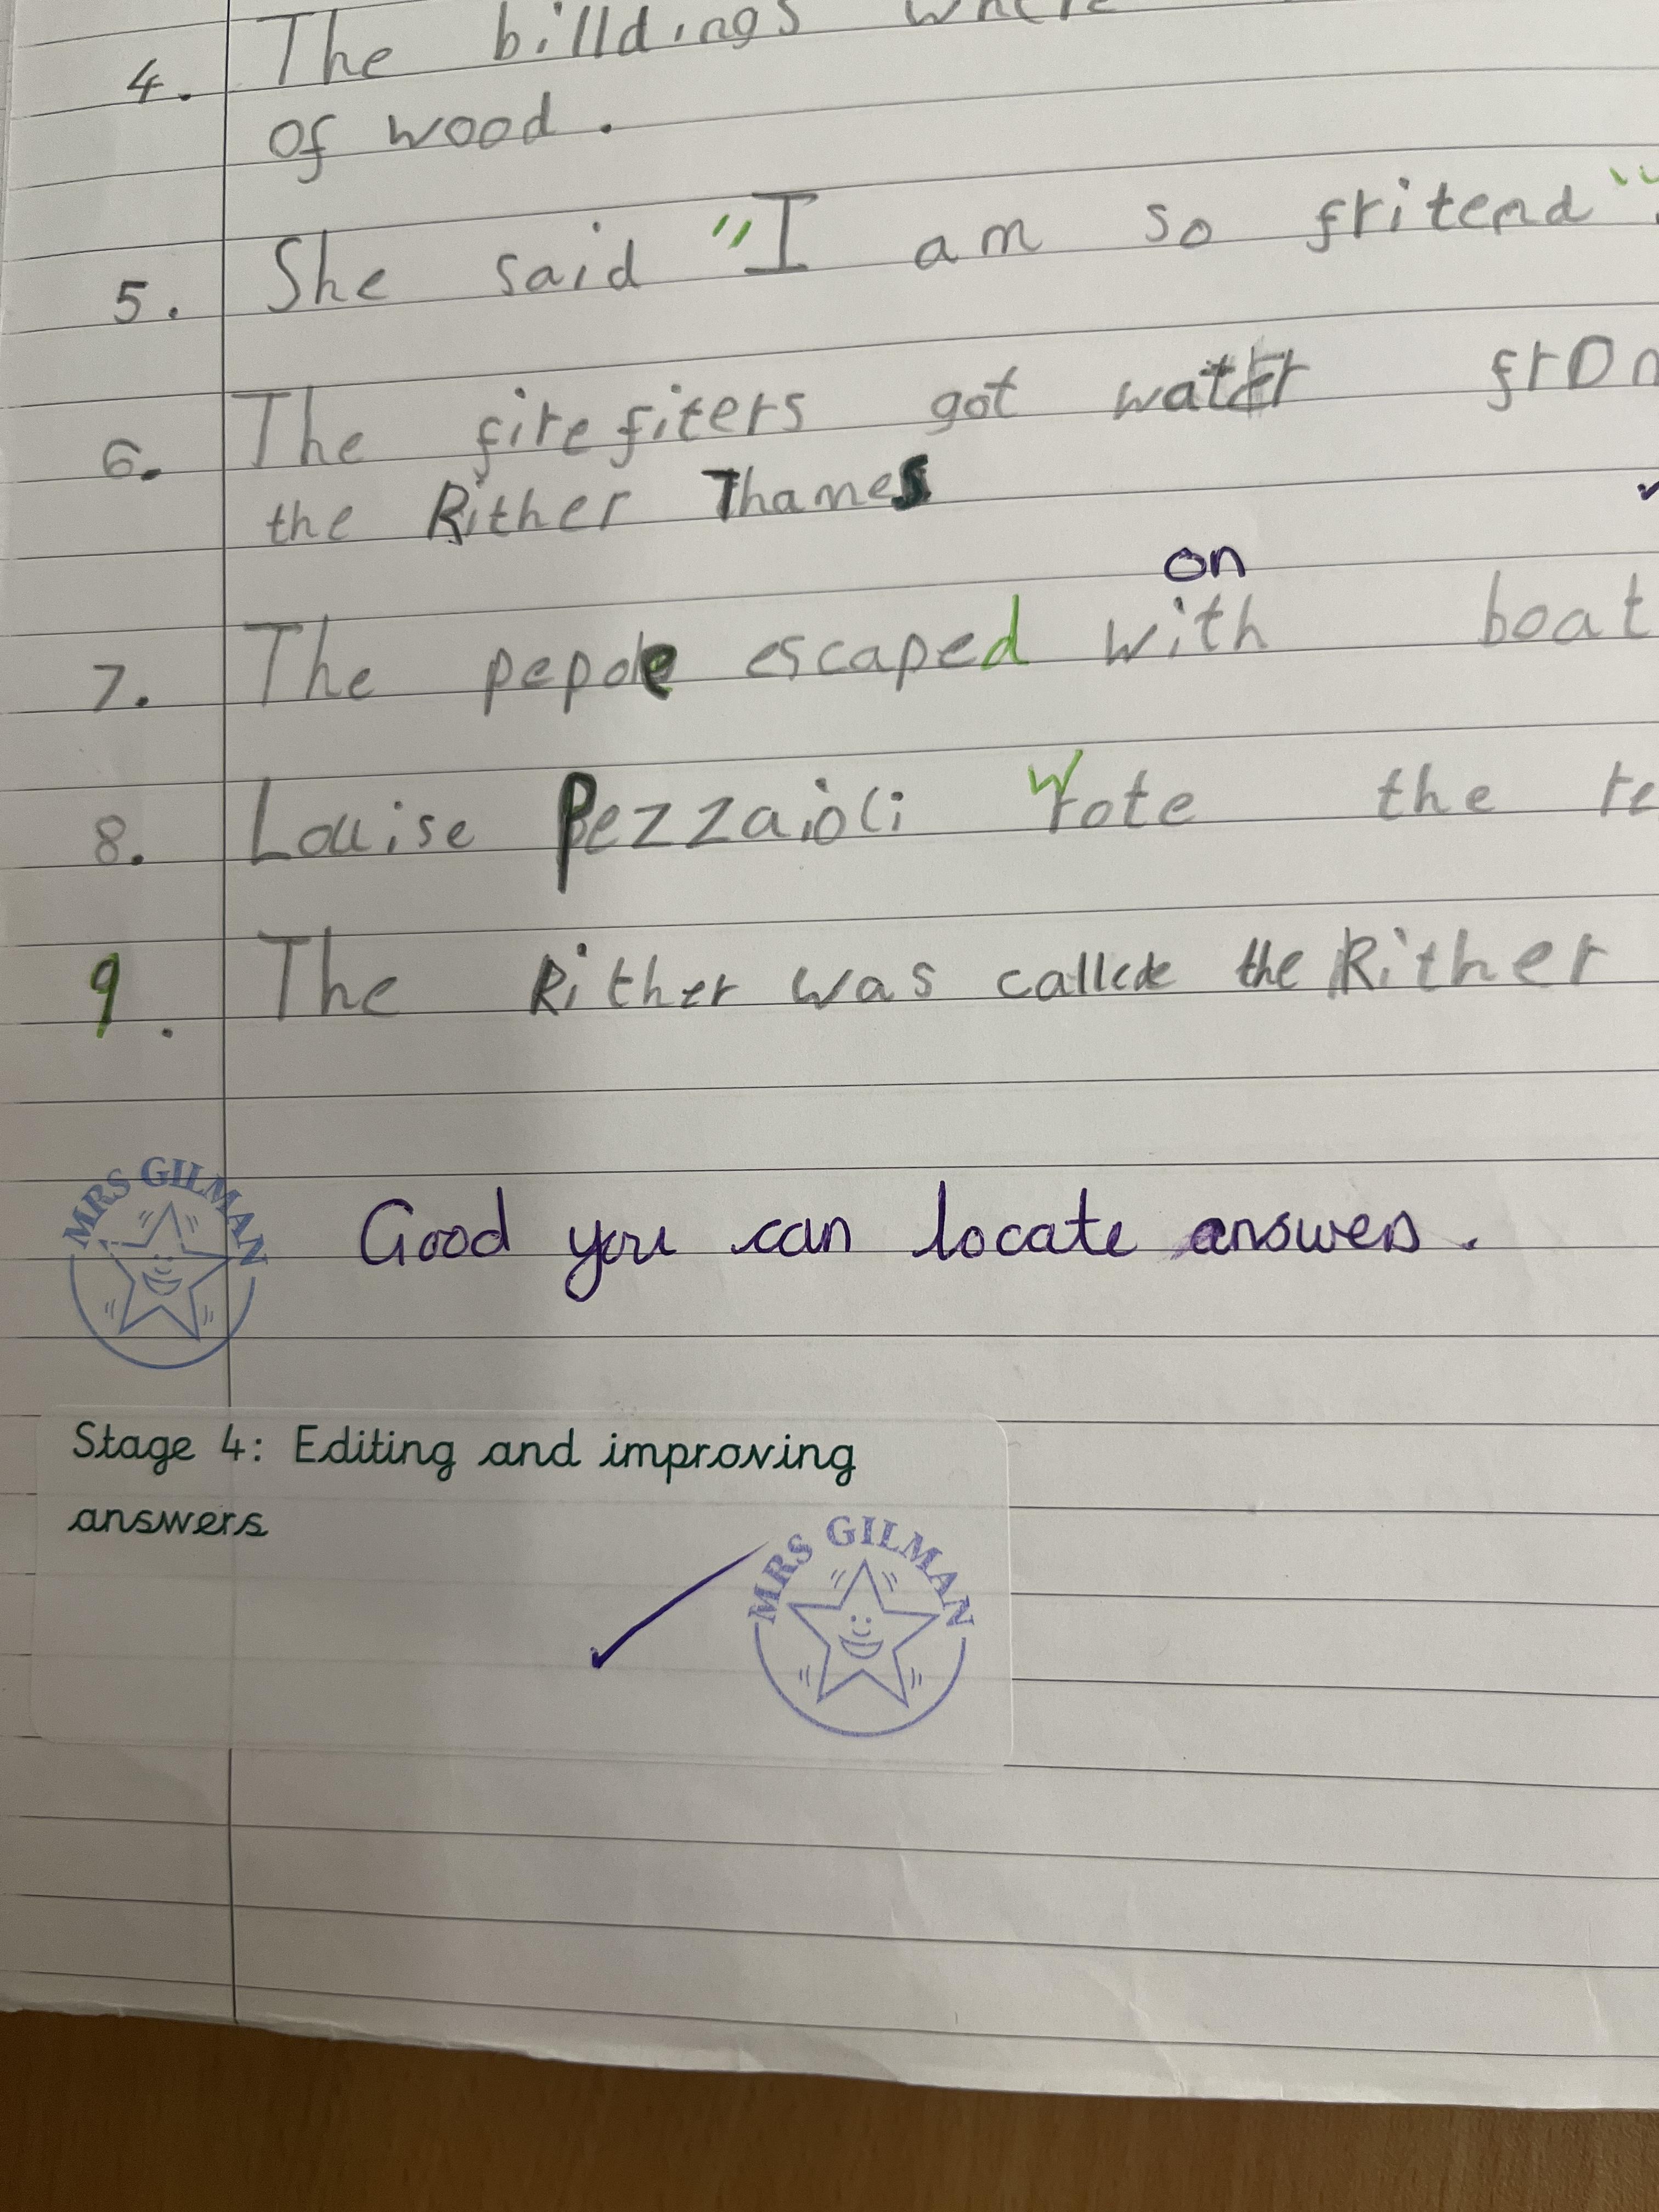 4. The billdings where
of wood.
5. She said "I am so fritend".
6. The firefiters got water from
the Rither Thames
on
7. The pepole escaped with boat
8. Louise Pezzaioli Wrote the re
9. The Rither was callede the Rither
MRS GILMAN
Good you can locate answers.
Stage 4: Editing and improving
answers
MRS GILMAN